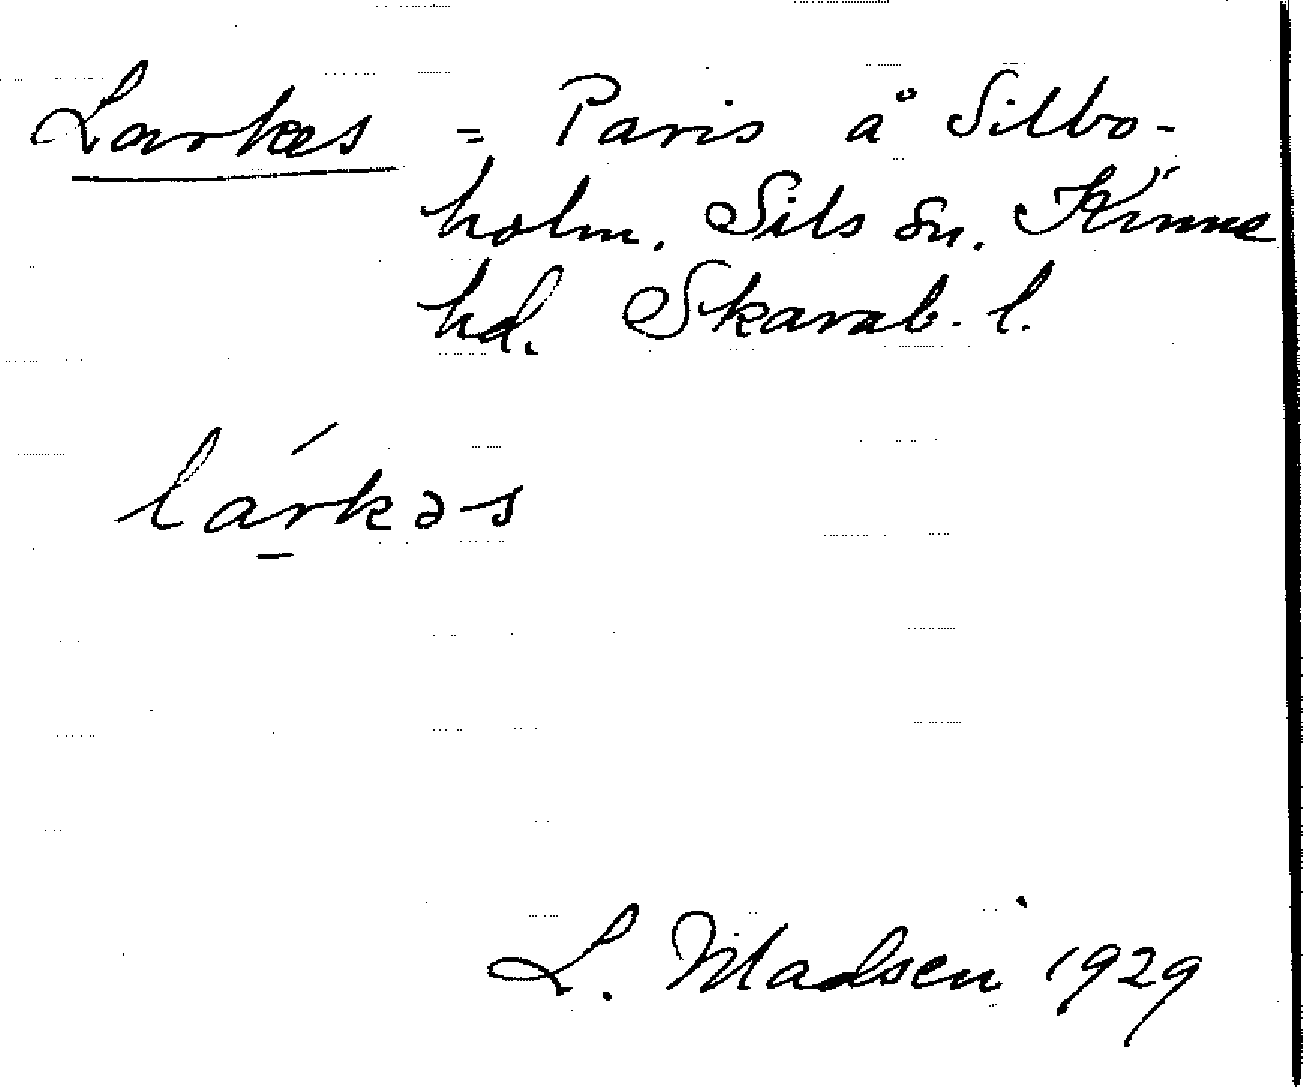 Larkes = Paris å Silbo-
holm. Sils sn. Kinne
hd. Skarab. l.
lárkəs
L. Madsen 1929